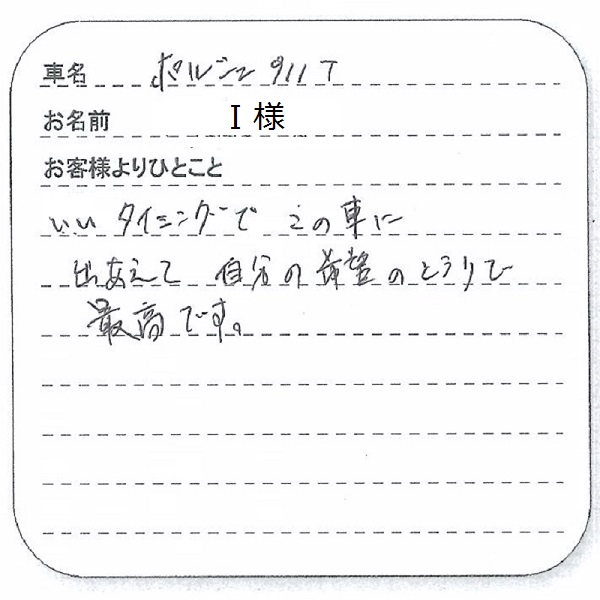 車名 ポルシェ 911T
お名前 I 様
お客様よりひとこと
いいタイミングで この車に
出あえて 自分の希望のとうりで
最高です。